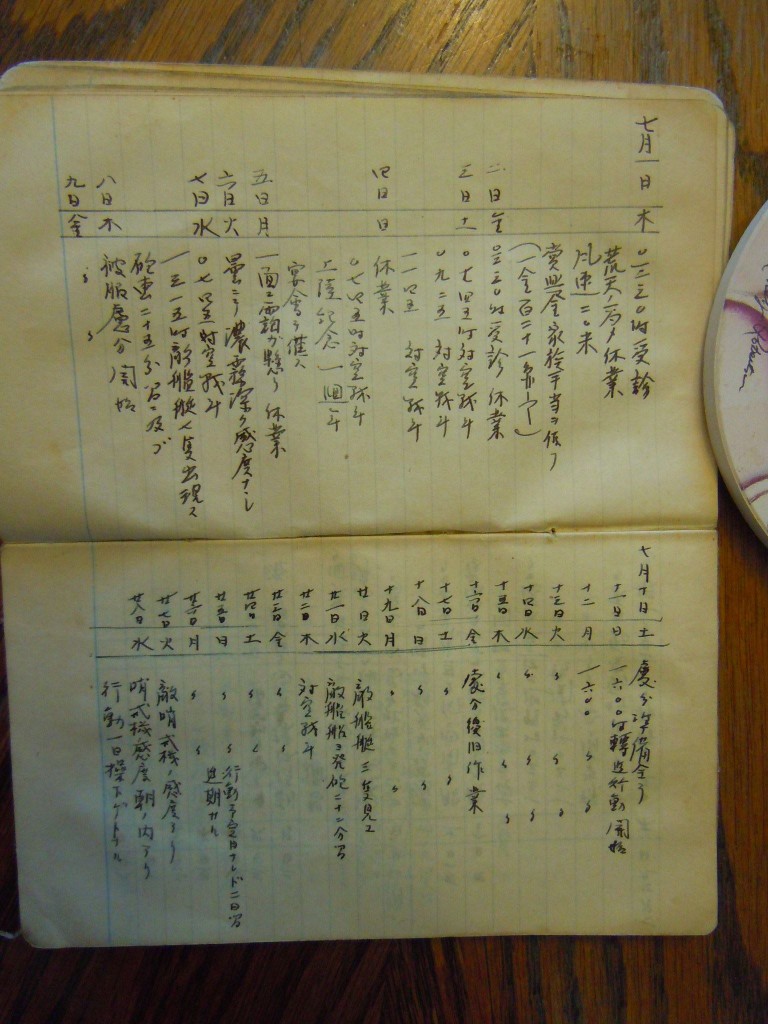 七月一日 木 〇二三〇時受診
荒天ノ為メ休業
風速二〇米
賞與金 家族手当ヲ依フ
二日 金 〇三三〇時受診 休業
三日 土 〇七四五時対空戦斗
〇九二五 対空戦斗
一一四五 対空戦斗
四日 日 休業
〇七四五時対空戦斗
上陸紀念 一個年
宴會ヲ催ス
五日 月 一面ニ霧ガ懸リ 休業
六日 火 曇ニテ濃霧深ク感度ナシ
七日 水 〇七四五時対空戦斗
一三一五時敵艦艇七隻出現ス
砲撃二十五分間ニ及ブ
八日 木 被服處分開始
九日 金 〻 〻
七月十日 土 處分準備全了
十一日 日 一六〇〇時轉進行動開始
十二 月 一六〇〇 〻 〻
十三日 火 〻 〻 〻
十四日 水 〻 〻 〻
十五日 木 〻 〻 〻
十六日 金 處分復旧作業
十七日 土 〻 〻
十八日 日 〻 〻
十九日 月 〻 〻
廿日 火 敵艦艇三隻見ユ
廿一日 水 敵艦船ヨリ発砲二十二分間
廿二日 木 対空戦斗
廿三日 金 〻 〻
廿四日 土 〻 〻
廿五日 日 〻 〻 行動予定日ナレド二日間
延期サル
廿六日 月 〻 〻
廿七日 火 敵哨戒機ノ感度アリ
哨戒機感度朝ノ内アリ
廿八日 水 行動一日操下ゲトナル